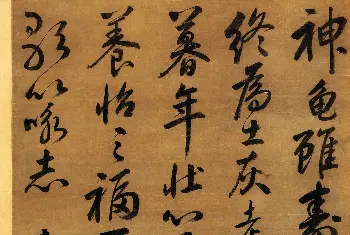 神龜雖壽
終爲土灰老
暮年壯心
養怡之福
歌以咏志